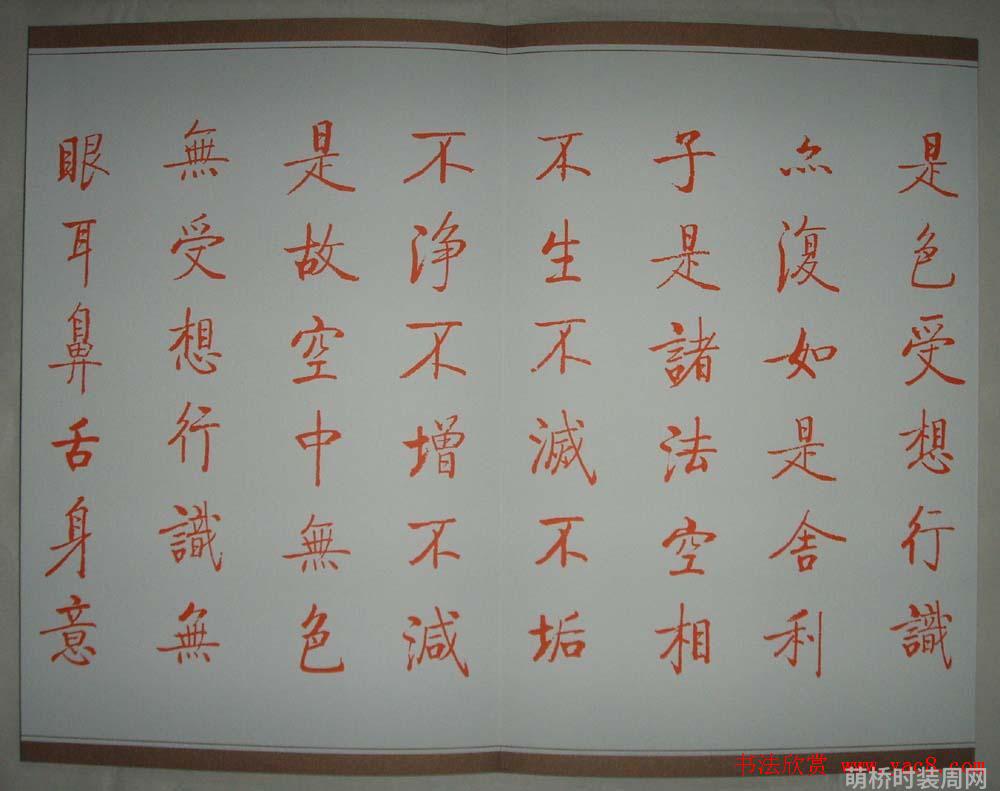 是色受想行識
亦復如是舍利
子是諸法空相
不生不滅不垢
不淨不增不減
是故空中無色
無受想行識無
眼耳鼻舌身意
书法欣赏 www.yac8.com
萌桥时装周网